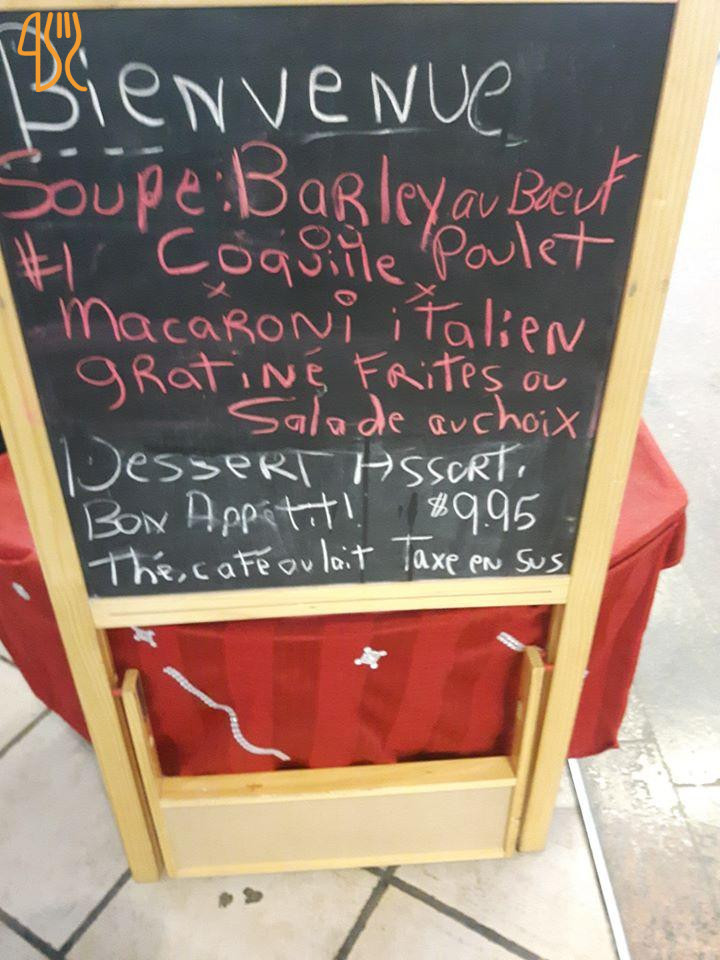 Bienvenue
Soupe: Barley au Boeuf
#1 Coquille Poulet
ou
Macaroni italien
gratiné Frites ou
Salade au choix
Dessert Assort.
Bon Appétit! $9.95
Thé, café ou lait Taxe en sus